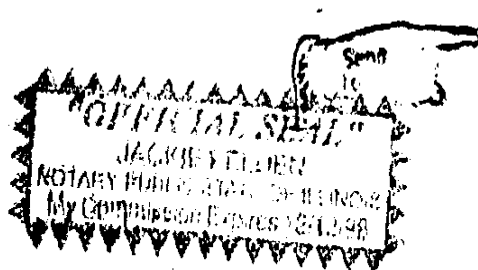 Send
to
"OFFICIAL SEAL"
JACKIE
NOTARY PUBLIC STATE OF ILLINOIS
My Commission Expires